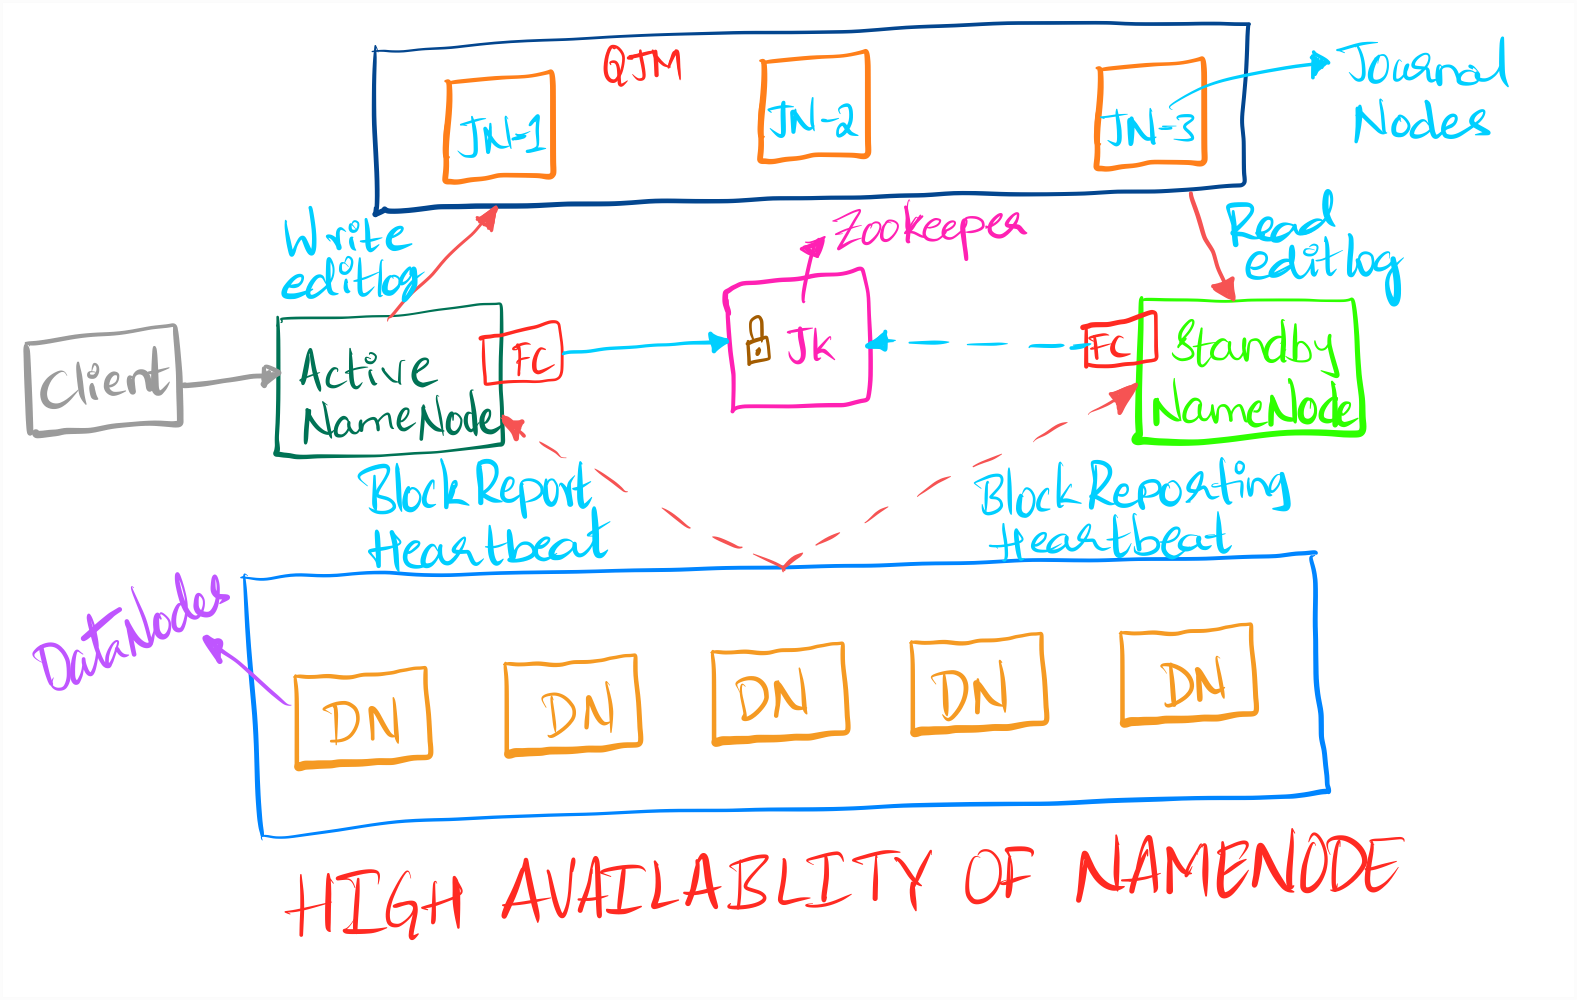 QJM
JN-1
JN-2
JN-3
Journal
Nodes
Write
editlog
Zookeeper
Read
editlog
Client
Active
NameNode
FC
Jk
FC
Standby
NameNode
Block Report
Heartbeat
Block Reporting
Heartbeat
DataNodes
DN
DN
DN
DN
DN
HIGH AVAILABLITY OF NAMENODE